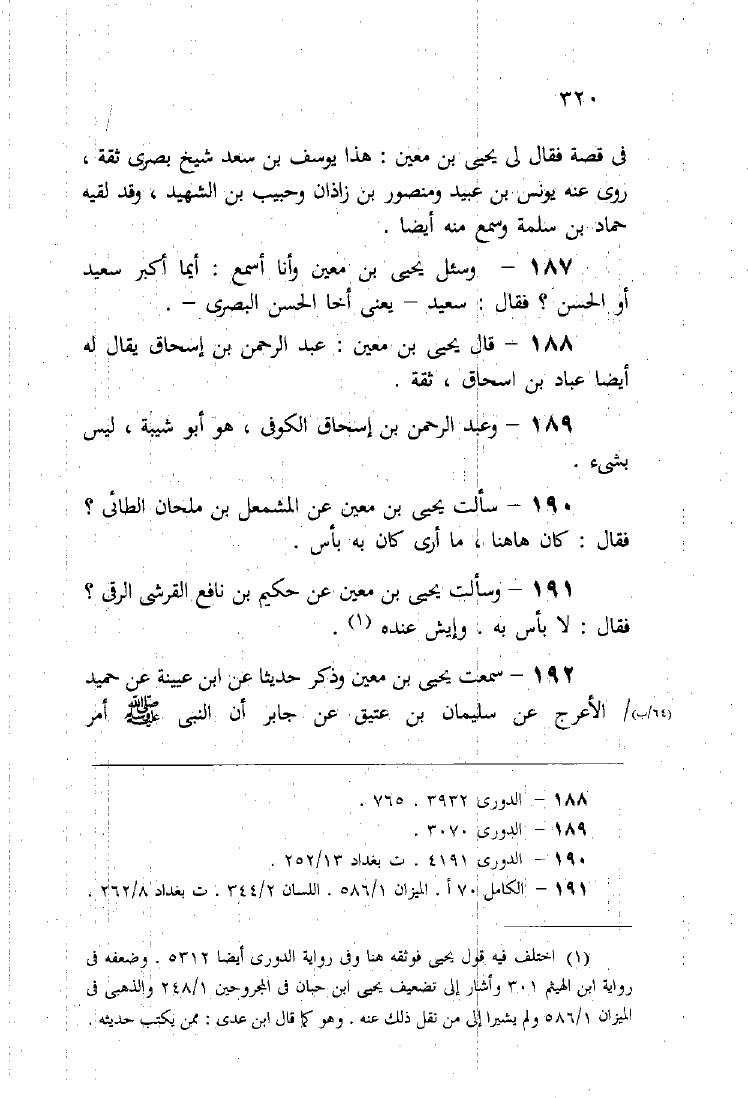 ٣٢٠
فى قصة فقال لى يحيى بن معين : هذا يوسف بن سعد شيخ بصرى ثقة ،
روى عنه يونس بن عبيد ومنصور بن زاذان وحبيب بن الشهيد ، وقد لقيه
حماد بن سلمة وسمع منه أيضا .
١٨٧ – وسئل يحيى بن معين وأنا أسمع : أيما أكبر سعيد
أو الحسن ؟ فقال : سعيد – يعنى أخا الحسن البصرى – .
١٨٨ – قال يحيى بن معين : عبد الرحمن بن إسحاق يقال له
أيضا عباد بن اسحاق ، ثقة .
١٨٩ – وعبد الرحمن بن إسحاق الكوفى ، هو أبو شيبة ، ليس
بشىء .
١٩٠ – سألت يحيى بن معين عن المشمعل بن ملحان الطائى ؟
فقال : كان هاهنا ، ما أرى كان به بأس .
١٩١ – وسألت يحيى بن معين عن حكيم بن نافع القرشى الرقى ؟
فقال : لا بأس به . وإيش عنده (١) .
١٩٢ – سمعت يحيى بن معين وذكر حديثا عن ابن عيينة عن حميد
(٦٤/ب)/ الأعرج عن سليمان بن عتيق عن جابر أن النبى ﷺ أمر
١٨٨ – الدورى ٣٩٣٢ . ٧٦٥ .
١٨٩ – الدورى ٣٠٧٠ .
١٩٠ – الدورى ٤١٩١ . ت بغداد ٢٥٢/١٣ .
١٩١ – الكامل ٧٠ أ . الميزان ٥٨٦/١ . اللسان ٣٤٤/٢ . ت بغداد ٢٦٢/٨ .
(١) اختلف فيه قول يحيى فوثقه هنا وفى رواية الدورى أيضا ٥٣١٢ . وضعفه فى
رواية ابن الهيثم ٣٠١ وأشار إلى تضعيف يحيى ابن حبان فى المجروحين ٢٤٨/١ والذهبى فى
الميزان ٥٨٦/١ ولم يشيرا إلى من نقل ذلك عنه . وهو كما قال ابن عدى : ممن يكتب حديثه .